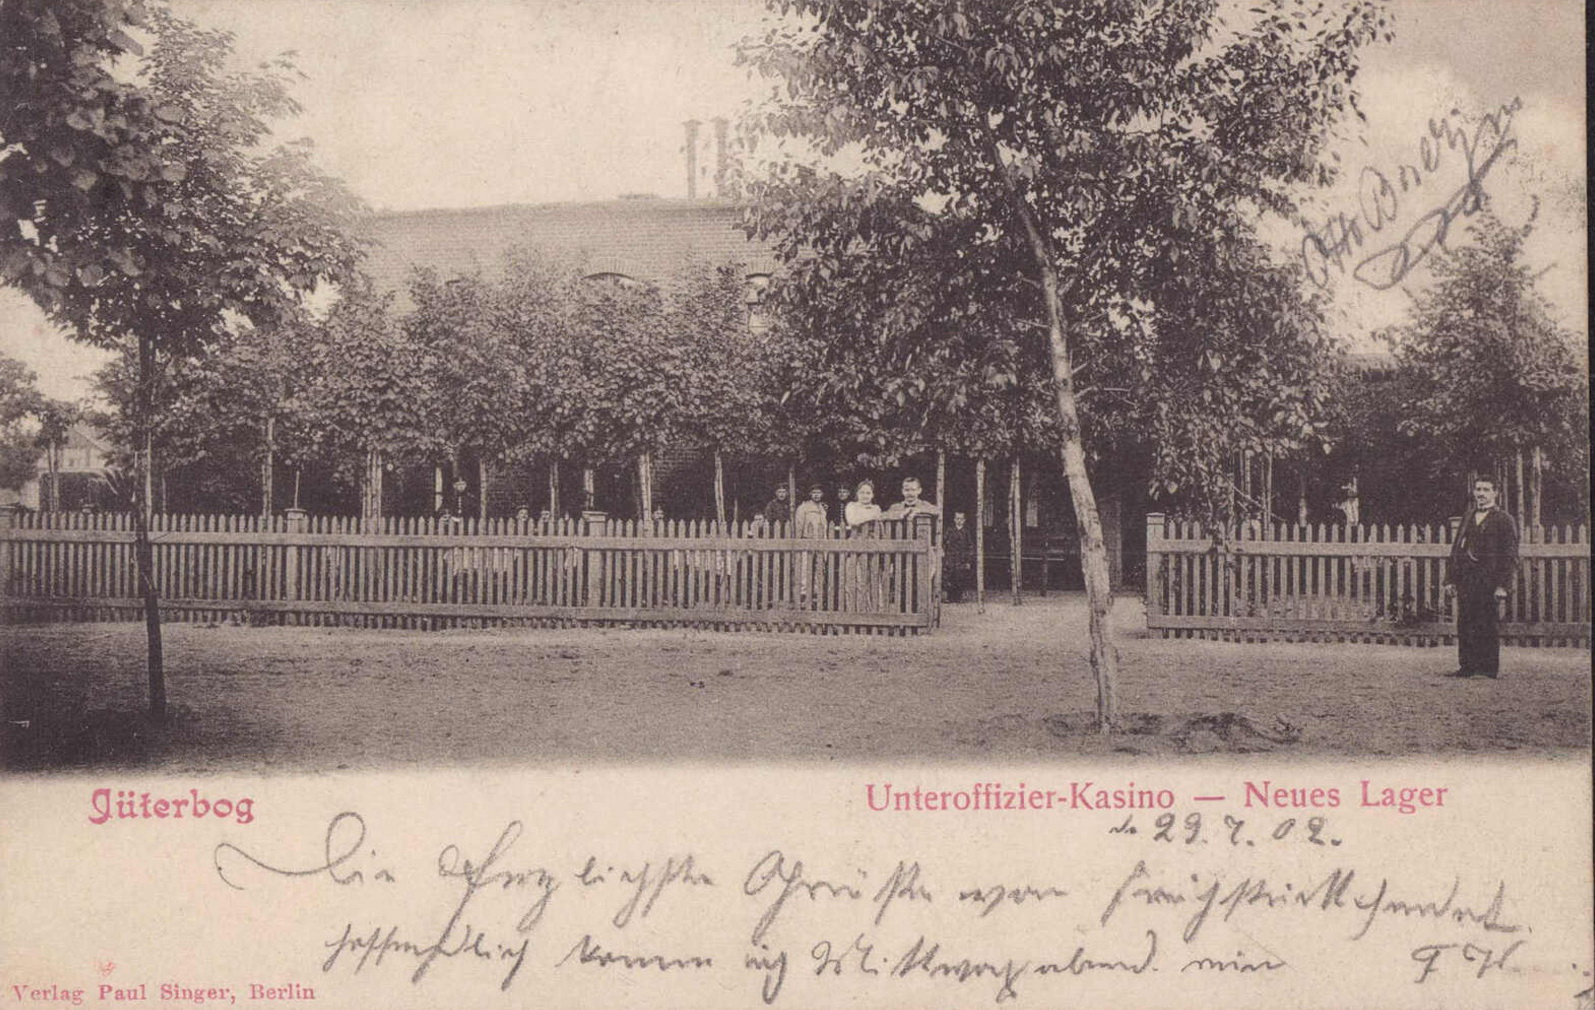 Otto Boerzm
Jüterbog
Unteroffizier-Kasino — Neues Lager
d. 29.7.02.
Die Herzlichste Grüße von
hoffendlich komm ich Mittwoch abend.
Verlag Paul Singer, Berlin